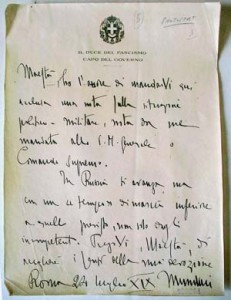 IL DUCE DEL FASCISMO
CAPO DEL GOVERNO
Maestà, ho l'onore di mandarVi in
una nota sulla situazione
politico - militare, da me
alle S. M. e
Comando Supremo.
In Russia si avanza, ma
con un di marcia inferiore
a quello previsto, non solo dagli
incompetenti. Maestà, di
i sensi della mia devozione
Roma 24 luglio XIX Mussolini